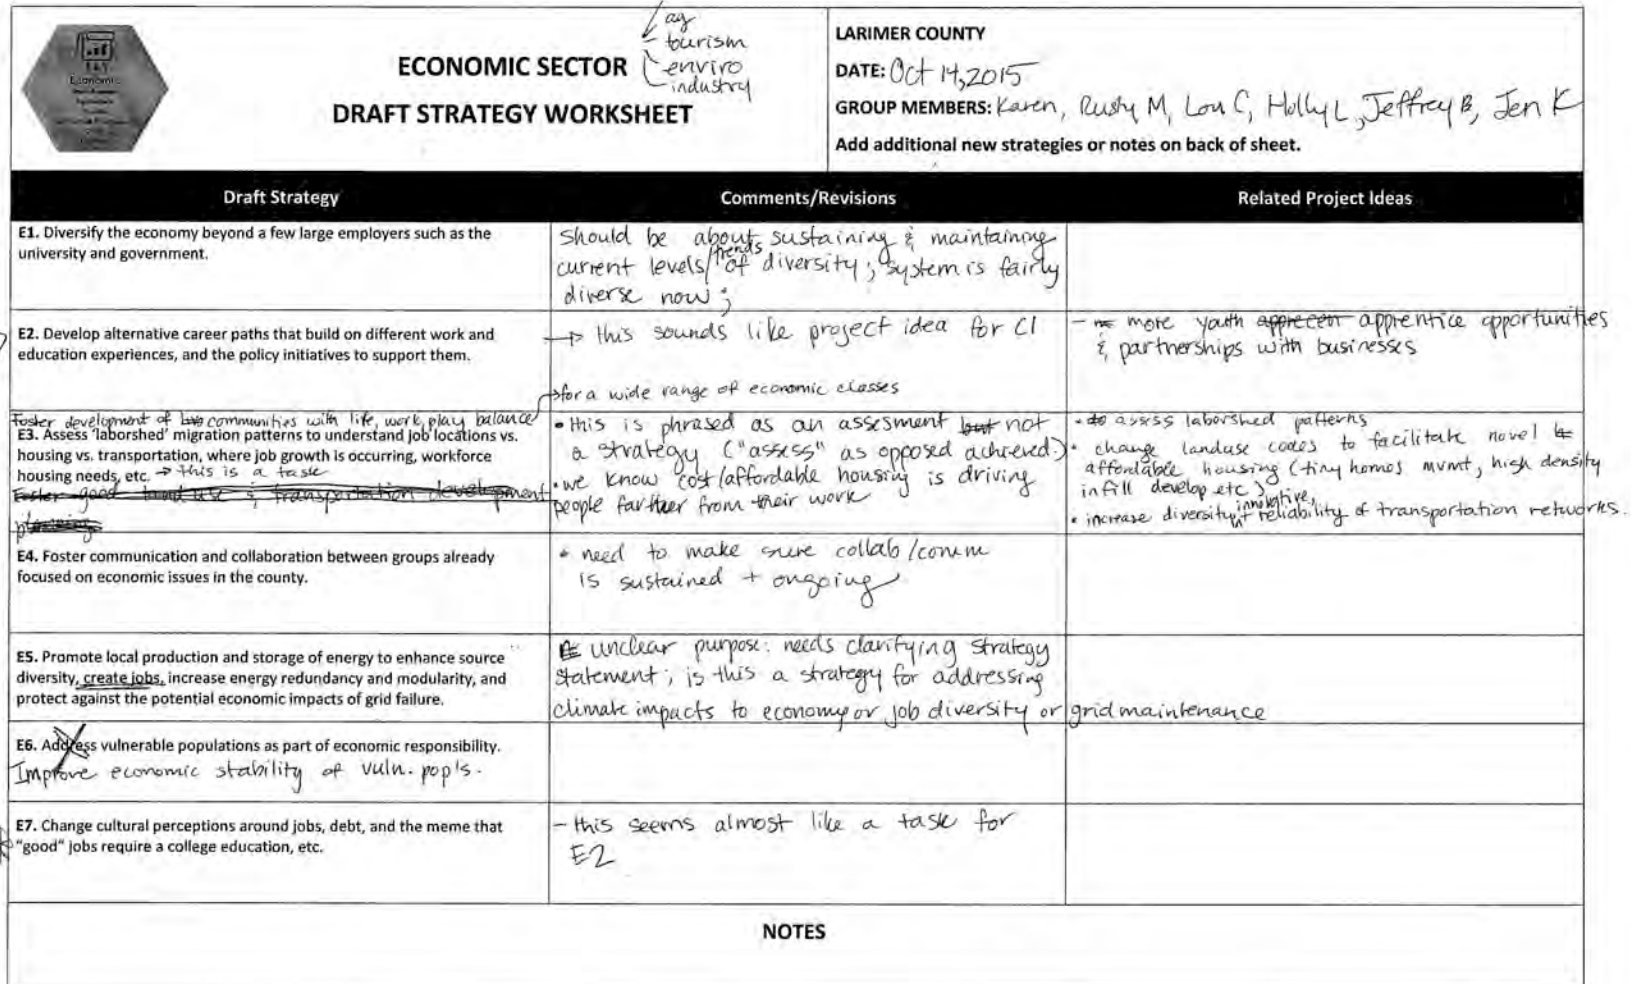 ag
tourism
enviro
industry
Economic
ECONOMIC SECTOR
DRAFT STRATEGY WORKSHEET
LARIMER COUNTY
DATE: Oct 14, 2015
GROUP MEMBERS: Karen, Rusty M, Lou C, Holly L, Jeffrey B, Jen K
Add additional new strategies or notes on back of sheet.
Draft Strategy
Comments/Revisions
Related Project Ideas
E1. Diversify the economy beyond a few large employers such as the
university and government.
should be about sustaining & maintaining
current levels/trends of diversity; system is fairly
diverse now;
E2. Develop alternative career paths that build on different work and
education experiences, and the policy initiatives to support them.
→ this sounds like project idea for C1
- more youth apprecen apprentice opportunities
& partnerships with businesses
for a wide range of economic classes
Foster development of communities with life, work, play balance
E3. Assess 'laborshed' migration patterns to understand job locations vs.
housing vs. transportation, where job growth is occurring, workforce
housing needs, etc. → this is a task
Foster good land use & transportation development
planning
• this is phrased as an assesment but not
a strategy ("assess" as opposed achieved.)
• we know cost/affordable housing is driving
people farther from their work
• to assess laborshed patterns
• change landuse codes to facilitate novel
affordable housing (tiny homes mvmt, high density
infill develop etc)
• increase diversity, innovative, + reliability of transportation networks.
E4. Foster communication and collaboration between groups already
focused on economic issues in the county.
• need to make sure collab/comm
is sustained + ongoing
E5. Promote local production and storage of energy to enhance source
diversity, create jobs, increase energy redundancy and modularity, and
protect against the potential economic impacts of grid failure.
unclear purpose: needs clarifying strategy
statement; is this a strategy for addressing
climate impacts to economy or job diversity or grid maintenance
E6. Address vulnerable populations as part of economic responsibility.
Improve economic stability of vuln. pop's.
E7. Change cultural perceptions around jobs, debt, and the meme that
"good" jobs require a college education, etc.
- this seems almost like a task for
E2
NOTES